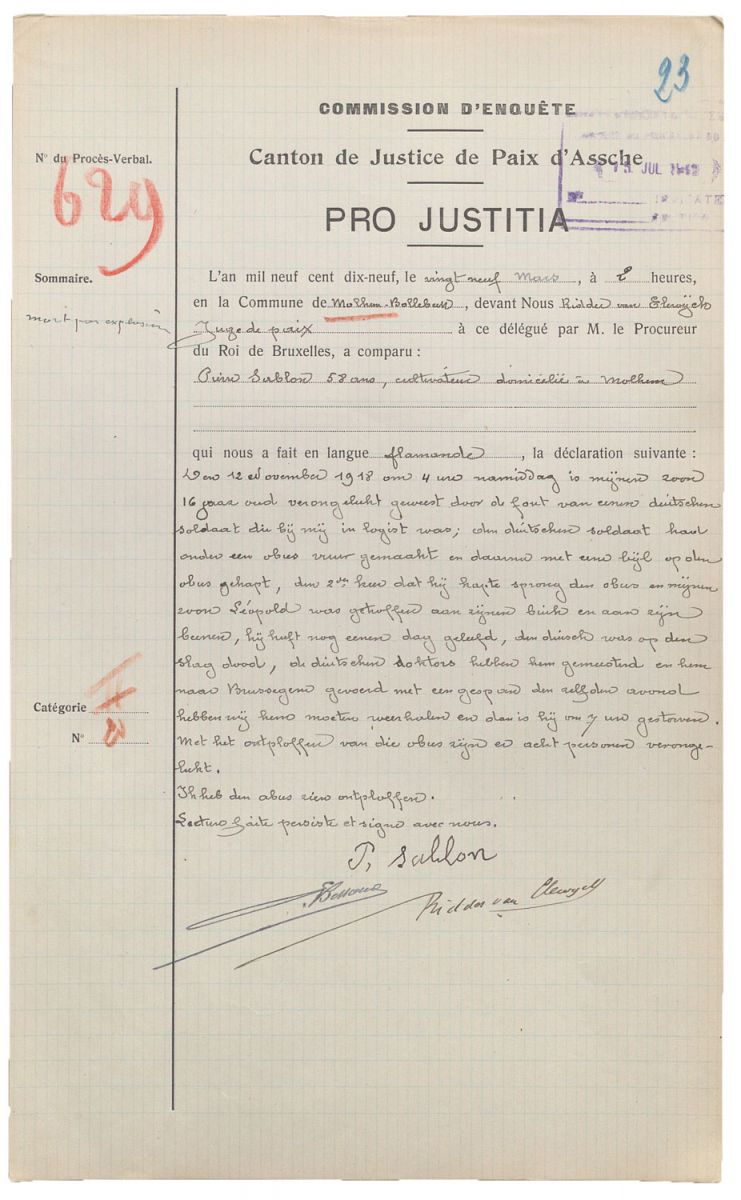 23
COMMISSION D'ENQUÊTE
Canton de Justice de Paix d'Assche
15 JUL
PRO JUSTITIA
N° du Procès-Verbal.
629
Sommaire.
mort par explosion
L'an mil neuf cent dix-neuf, le vingt neuf Mars, à 2 heures,
en la Commune de Molhem-Bollebeek, devant Nous Ridder van Elewyck
Juge de paix à ce délégué par M. le Procureur
du Roi de Bruxelles, a comparu :
Pierre Sablon 58 ans, cultivateur domicilié à Molhem
qui nous a fait en langue flamande, la déclaration suivante :
Den 12 November 1918 om 4 ure namiddag is mijnen zoon
16 jaar oud verongelukt geweest door de fout van eenen deutschen
soldaat die bij mij in logist was; den deutschen soldaat had
onder een obus vuur gemaakt en daarna met eene bijl op den
obus gekapt, den 2den keer dat hij kapte sprong den obus en mijnen
zoon Léopold was getroffen aan zijnen buik en aan zijn
beenen, hij heeft nog eenen dag geleefd, den duisch was op den
slag dood, de deutschen doktors hebben hem gemeesterd en hem
naar Brussegem gevoerd met een gespan den zelfden avond
hebben wij hem moeten weerhalen en dan is hij om 7 ure gestorven.
Met het ontploffen van die obus zijn er acht personen veronge-
lukt.
Ik heb den obus zien ontploffen.
Lecture faite persiste et signe avec nous.
P. Sablon
Ridder van Elewyck
Catégorie
N°